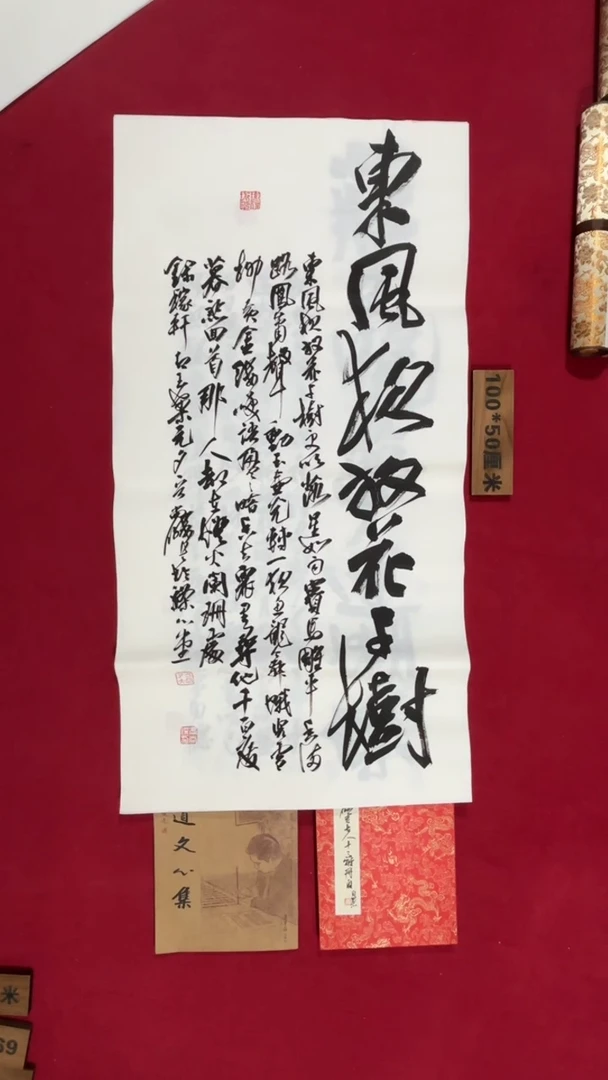 東風夜放花千樹
東風夜放花千樹更吹落星如雨寶馬雕車香滿
路鳳簫聲動玉壺光轉一夜魚龍舞蛾兒雪
柳黃金縷笑語盈盈暗香去衆里尋他千百度
驀然回首那人却在燈火闌珊處
錄稼軒 元夕
100*50厘米
道文心集
米
69